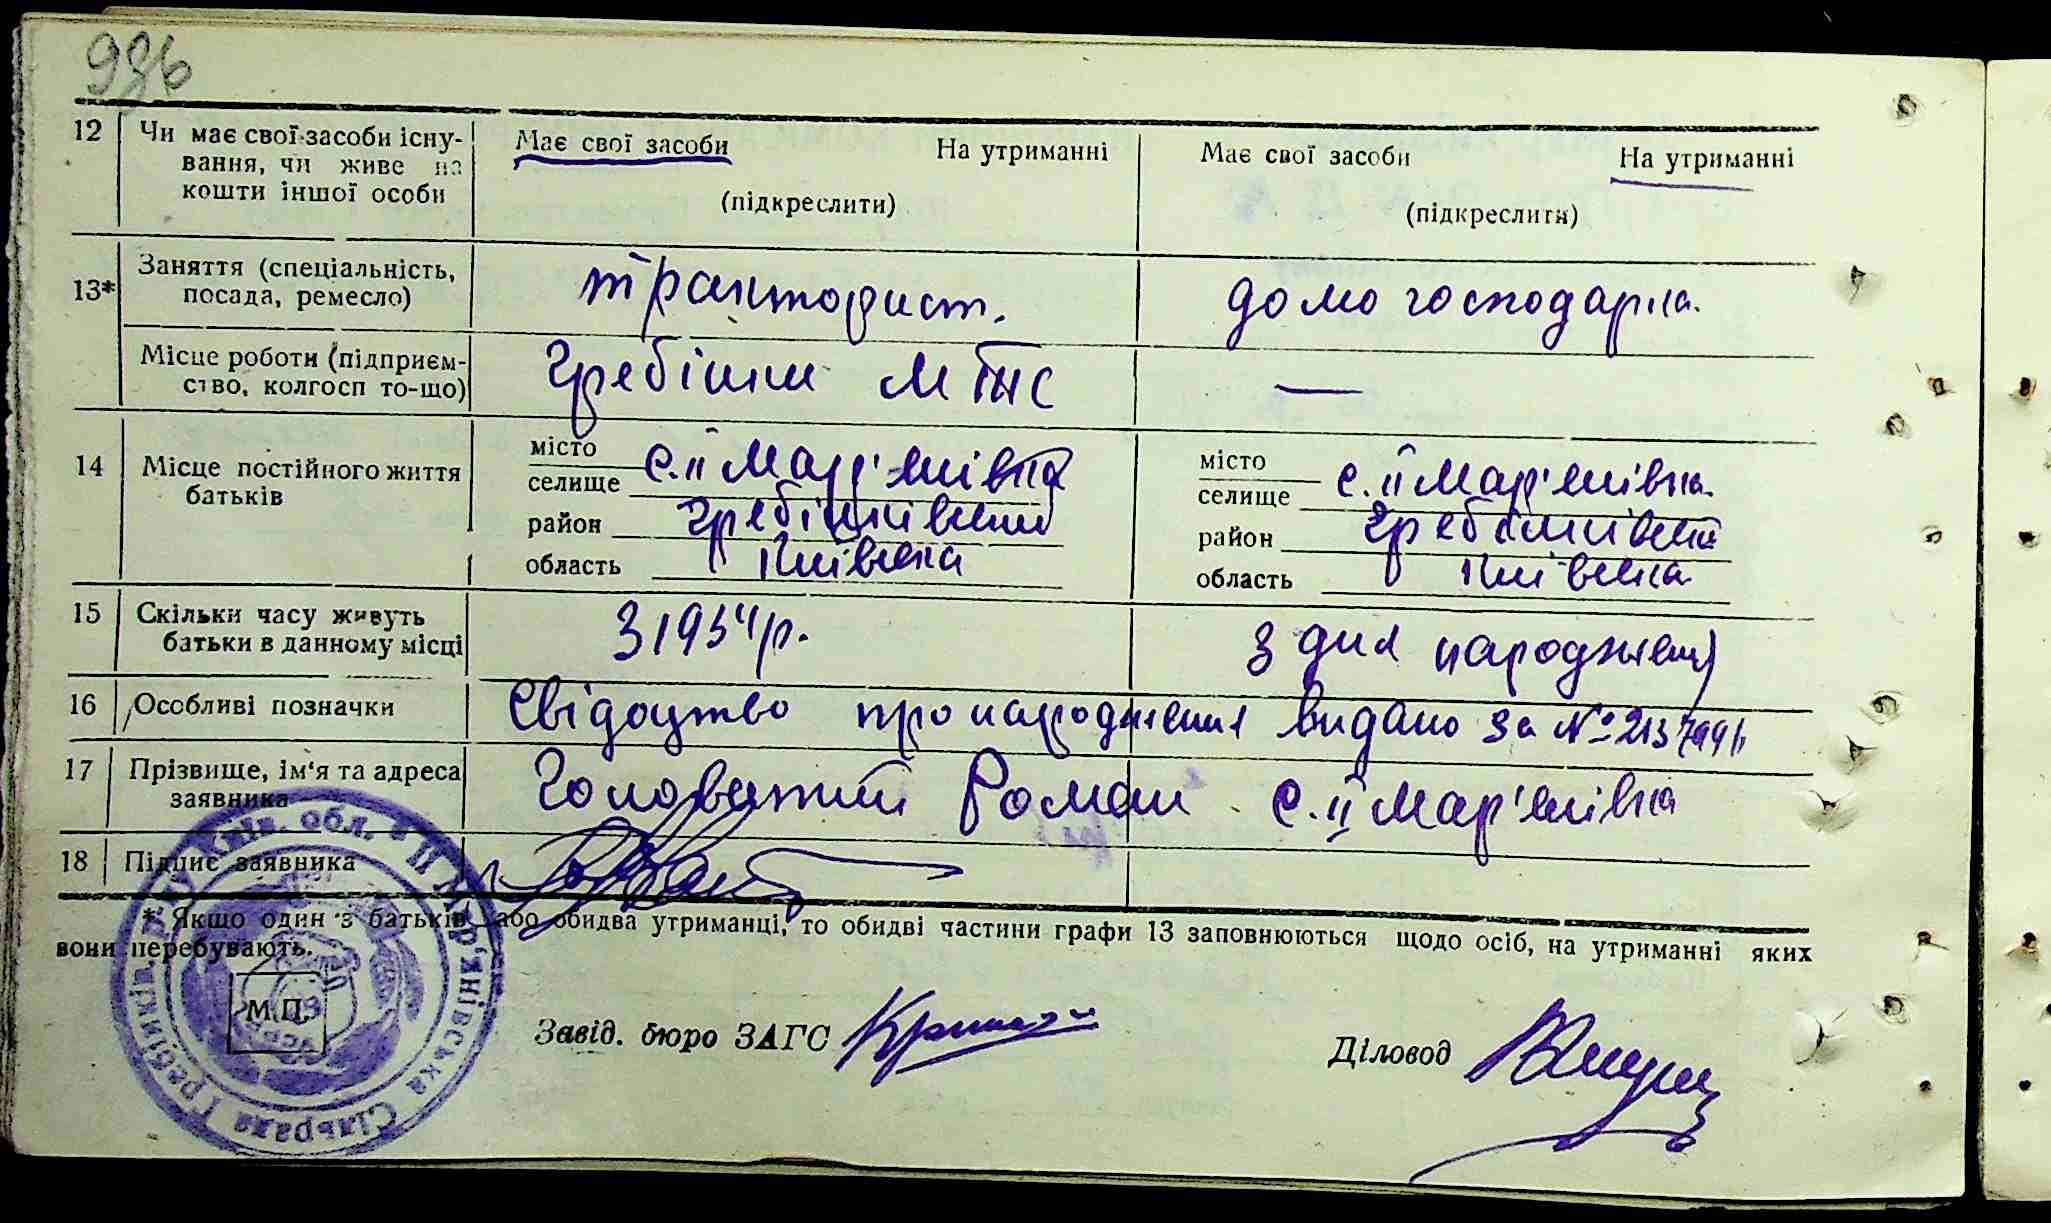 93б
12 Чи має свої засоби існу- Має свої засоби На утриманні Має свої засоби На утриманні
вання, чи живе на
кошти іншої особи (підкреслити) (підкреслити)
13* Заняття (спеціальність, тракторист. домогосподарка.
посада, ремесло)
Місце роботи (підприєм- Гребінки МТС —
ство, колгосп то-що)
14 Місце постійного життя місто с. ІІ Мар'янівка місто с. ІІ Мар'янівка
батьків селище селище
район Гребінківськ район Гребінківськ
область Київська область Київська
15 Скільки часу живуть З 1934 р. З дня народження
батьки в данному місці
16 Особливі позначки Свідоцтво про народження видано за №
17 Прізвище, ім'я та адреса Головатий Роман с. ІІ Мар'янівка
заявника
18 Підпис заявника
* Якщо один з батьків або обидва утриманці, то обидві частини графи 13 заповнюються щодо осіб, на утриманні яких
вони перебувають.
М.П.
Завід. бюро ЗАГС Діловод
Київ. обл. ІІ Мар'янівська Сільрада Гребінків. р-ну